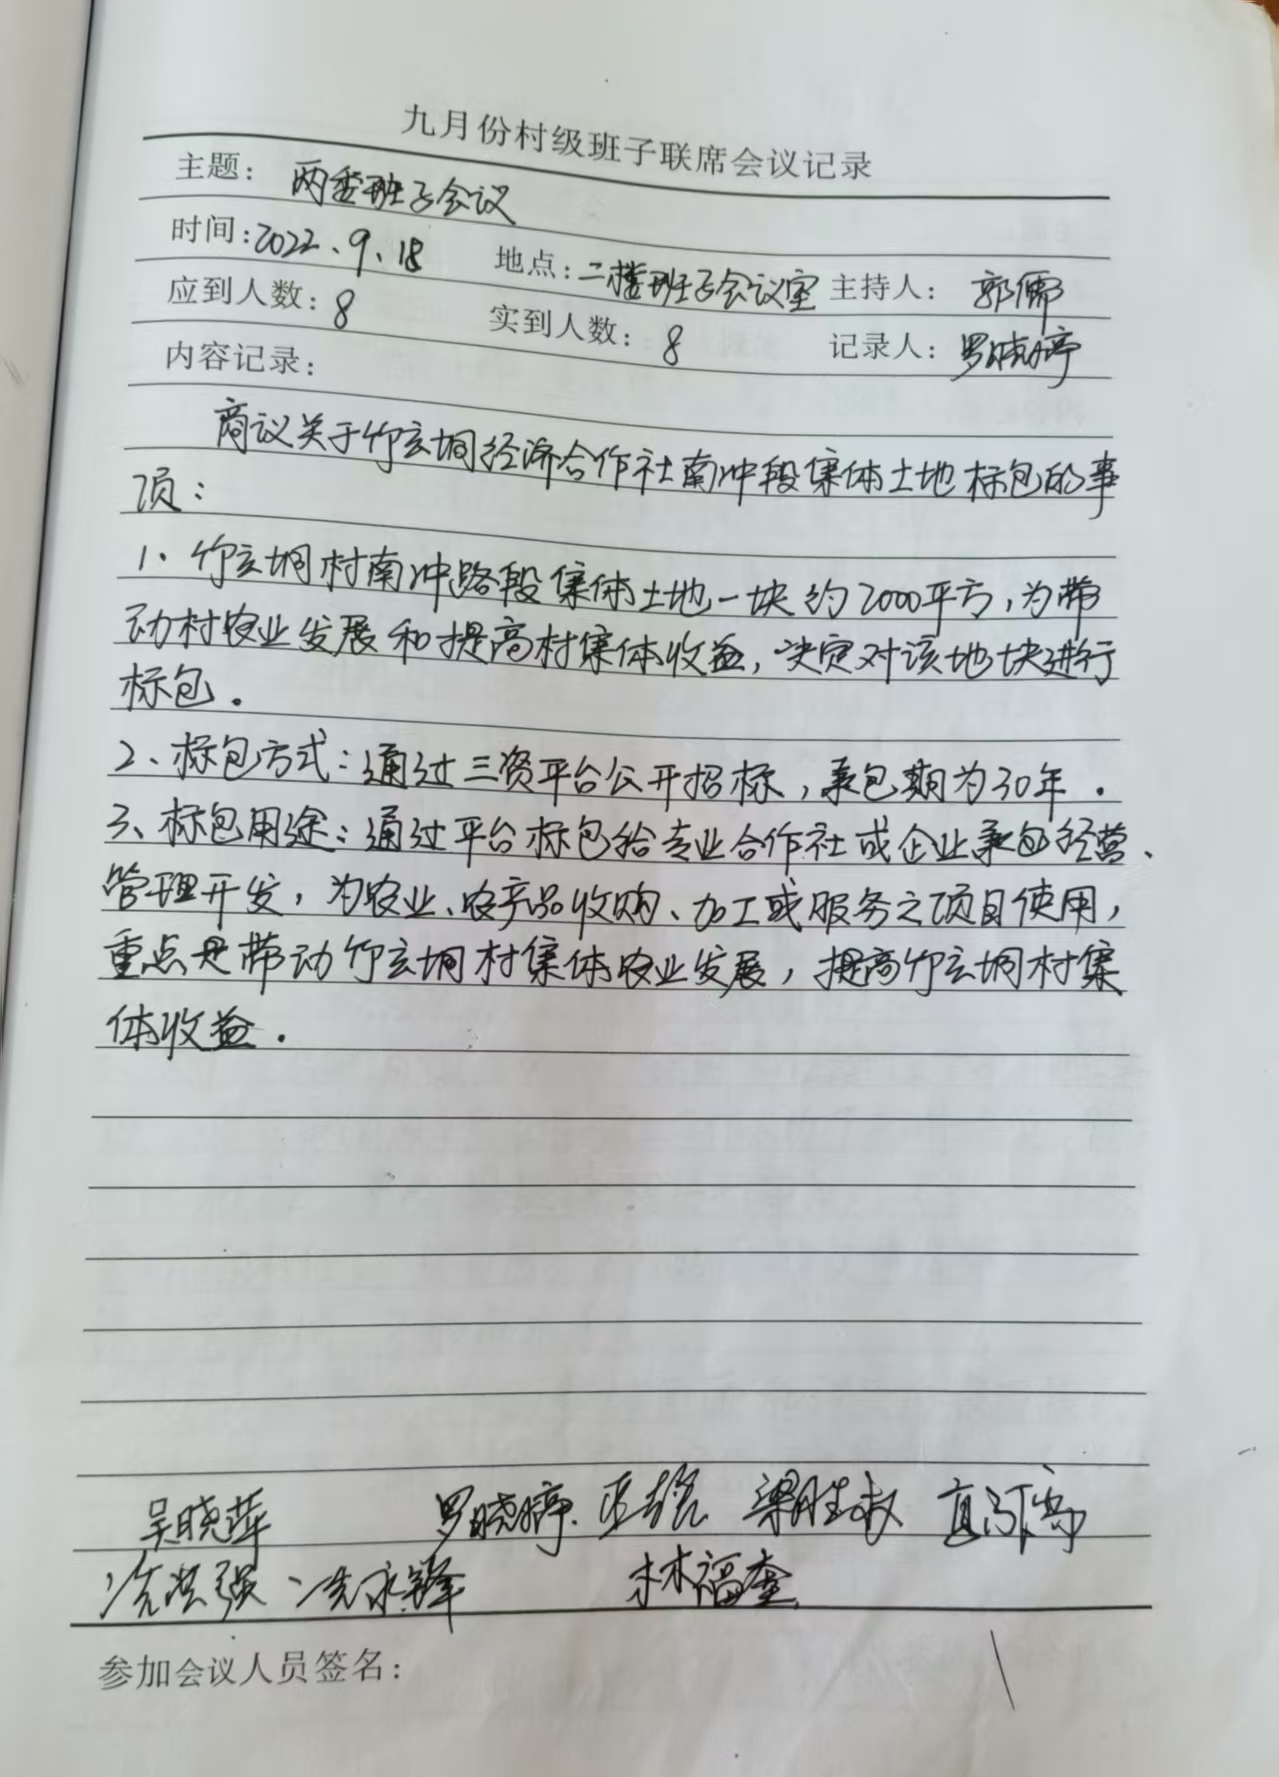 九月份村级班子联席会议记录
主题: 两委班子会议
时间:2022.9.18 地点:二楼班子会议室 主持人: 郭儒
应到人数: 8 实到人数: 8 记录人: 罗晓婷
内容记录:
商议关于竹玄垌经济合作社南冲段集体土地标包的事
项:
1、竹玄垌村南冲路段集体土地一块约2000平方,为带
动村农业发展和提高村集体收益,决定对该地块进行
标包。
2、标包方式:通过三资平台公开招标,承包期为30年.
3、标包用途:通过平台标包给专业合作社或企业承包经营、
管理开发,为农业、农产品收购、加工或服务之项目使用,
重点是带动竹玄垌村集体农业发展,提高竹玄垌村集
体收益.
吴晓萍 罗晓婷 梁胜
冼 强 冼永锋 林福奎
参加会议人员签名: